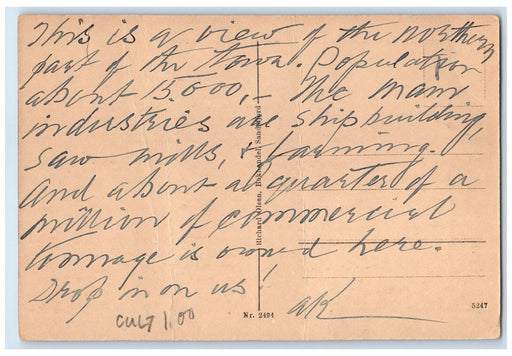 This is a view of the northern
part of the town. Population
about 15.000,- The main
industries are shipbuilding,
saw mills, & farming.
And about a quarter of a
million of commercial
tonnage is owned here.
Drop in on us!
AK
CULT 1.00
Nr. 2494
5247
Richard Olsen, Boghandel, Sandefjord